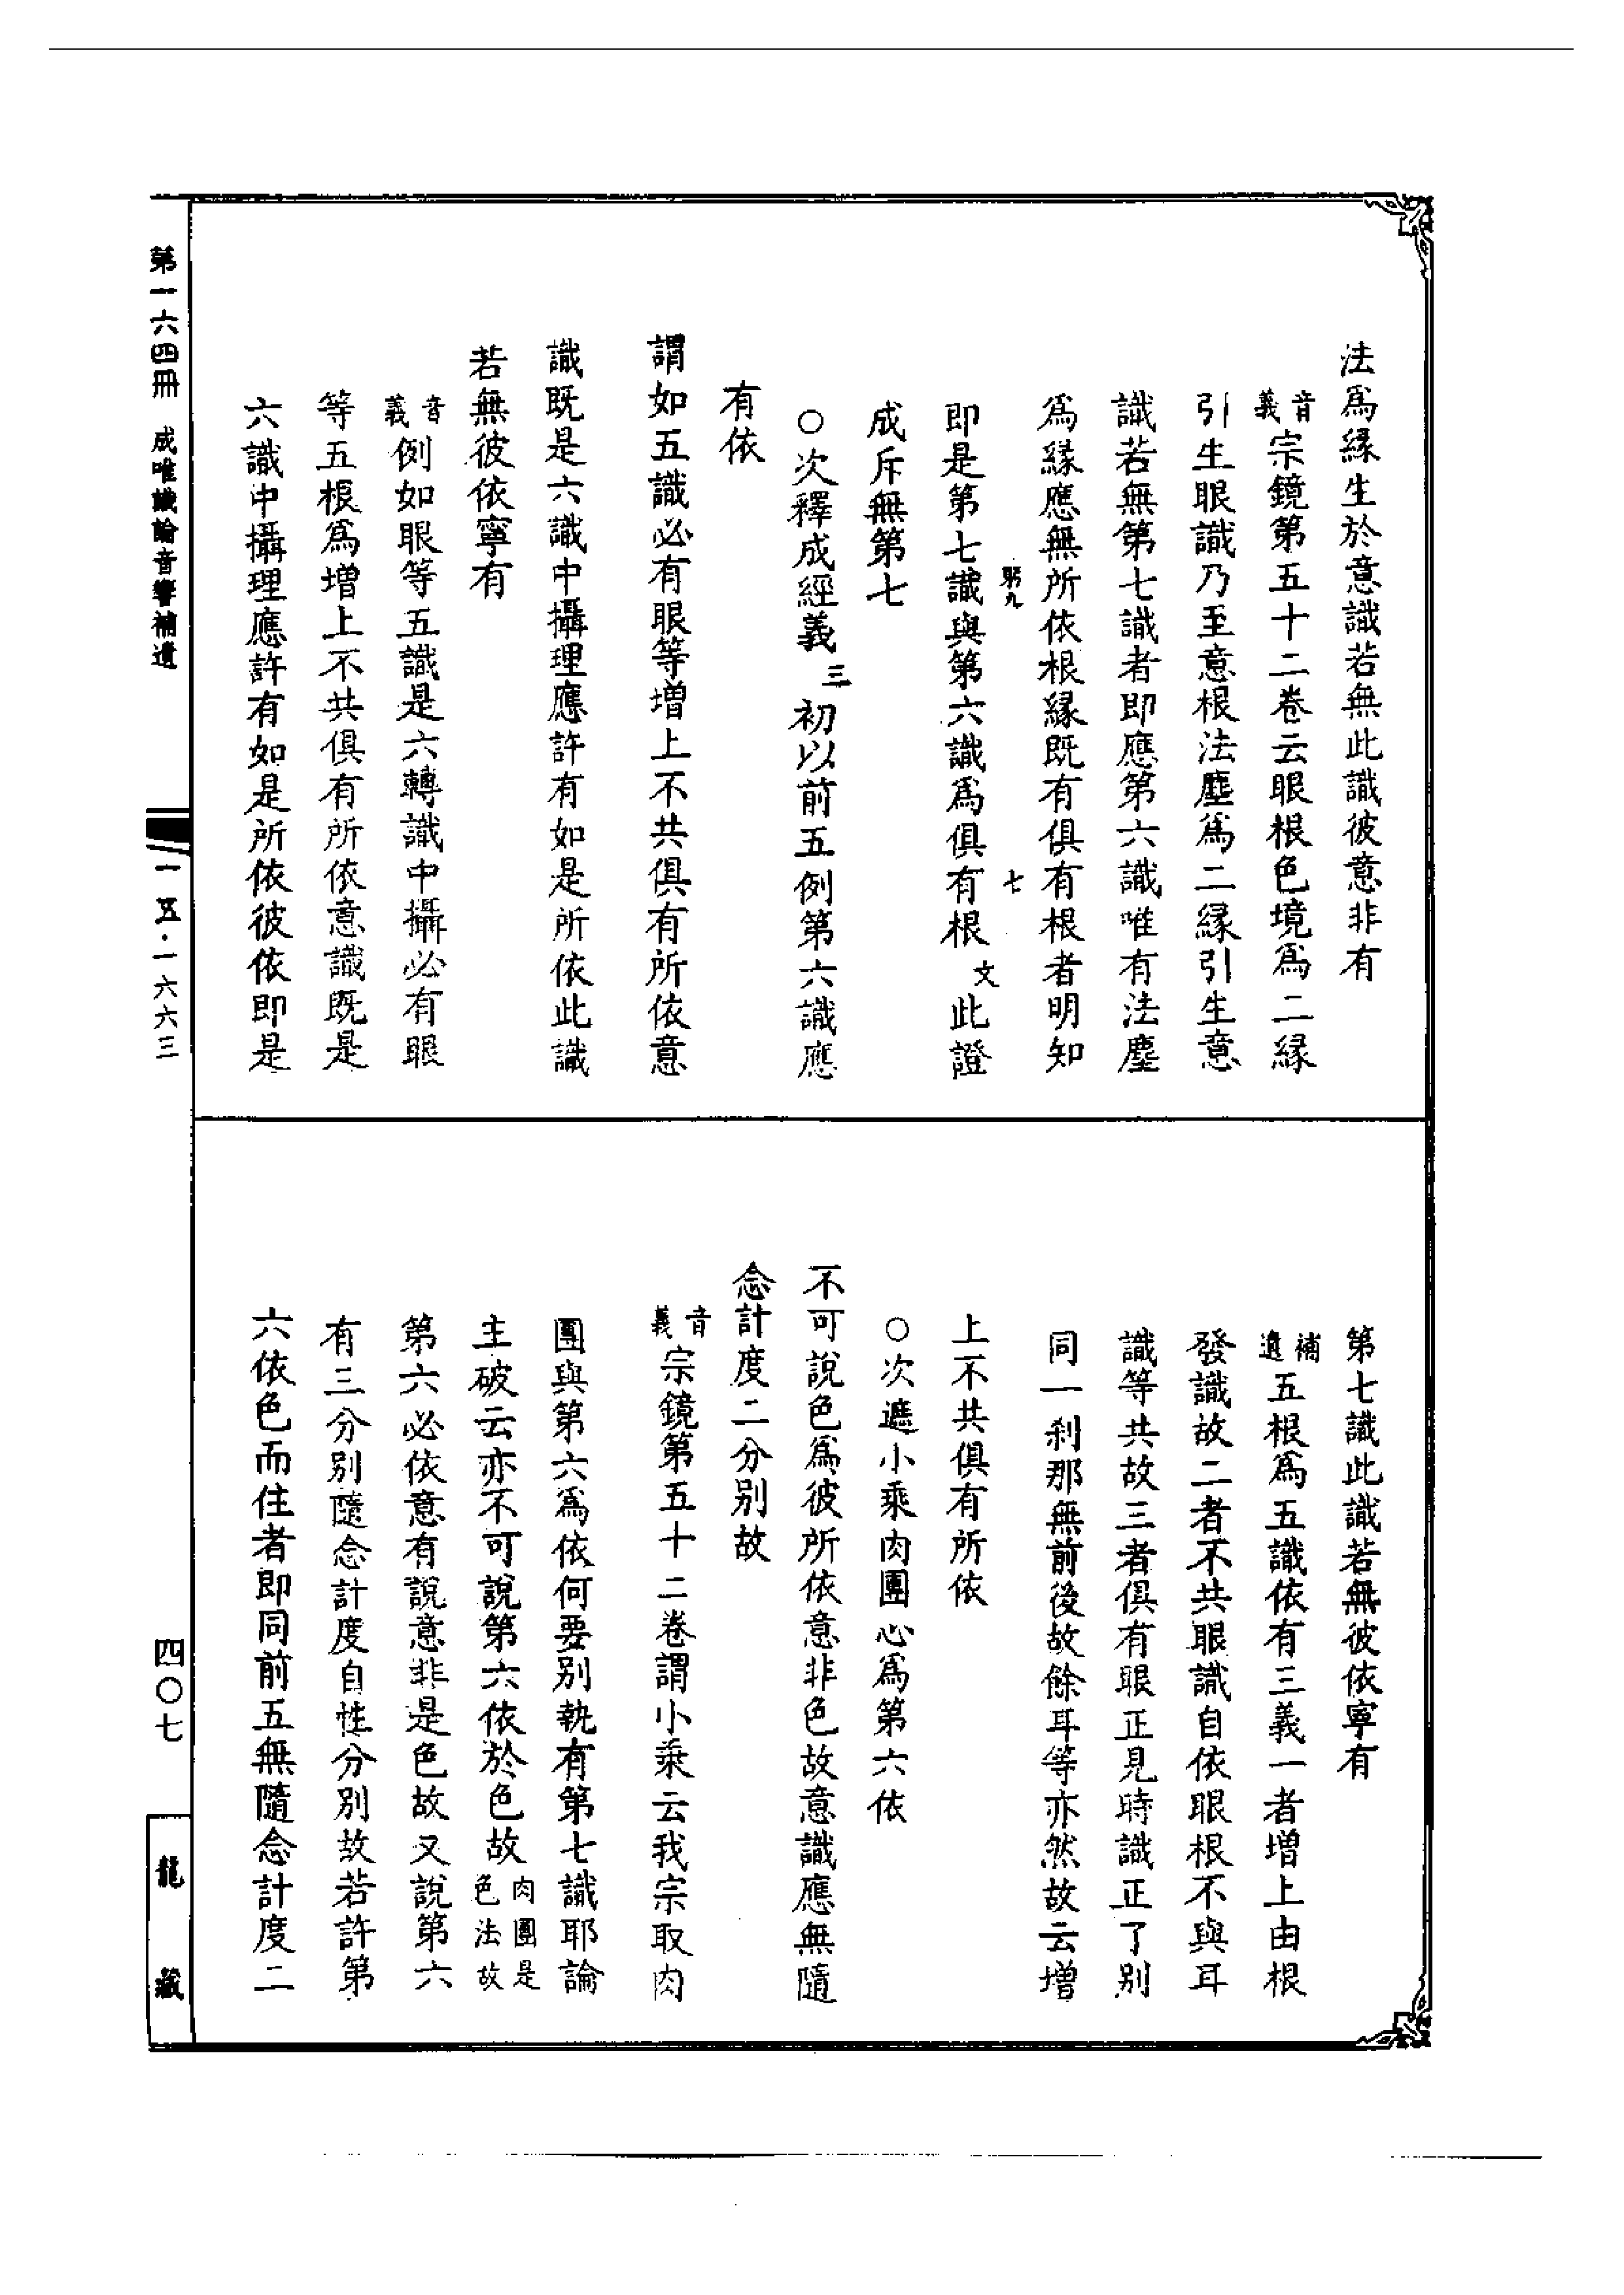 法爲緣生於意識若無此識彼意非有
音義宗鏡第五十二卷云眼根色境爲二緣
引生眼識乃至意根法塵爲二緣引生意
識若無第七識者即應第六識唯有法塵
爲緣應無所依根緣既有俱有根者明知
七
即是第七識與第六識爲俱有根文此證
成斥無第七
○次釋成經義三初以前五例第六識應
有依
謂如五識必有眼等增上不共俱有所依意
識既是六識中攝理應許有如是所依此識
若無彼依寧有
音義例如眼等五識是六轉識中攝必有眼
等五根爲增上不共俱有所依意識既是
六識中攝理應許有如是所依彼依即是
第七識此識若無彼依寧有
補遺五根爲五識依有三義一者增上由根
發識故二者不共眼識自依眼根不與耳
識等共故三者俱有眼正見時識正了別
同一刹那無前後故餘耳等亦然故云增
上不共俱有所依
○次遮小乘肉團心爲第六依
不可說色爲彼所依意非色故意識應無隨
念計度二分別故
音義宗鏡第五十二卷謂小乘云我宗取肉
團與第六爲依何要別執有第七識耶論
主破云亦不可說第六依於色故肉團是色法故
第六必依意有說意非是色故又說第六
有三分別隨念計度自性分別故若許第
六依色而住者即同前五無隨念計度二
第一六四冊　成唯識論音響補遺
一五·一六六三
四〇七
龍藏